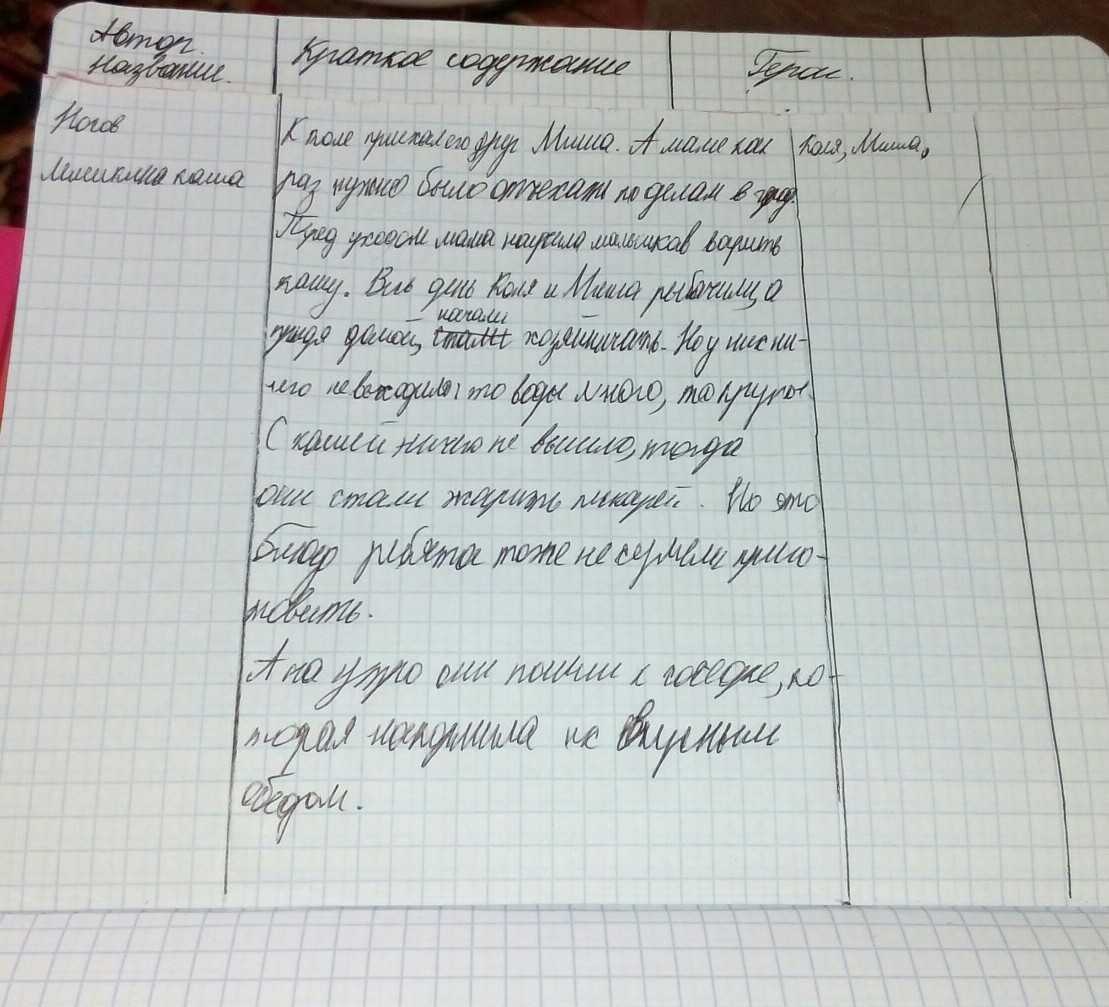 Автор. Название. Краткое содержание Герои.
Носов
Мишкина каша
К Коле приехал его друг Миша. А маме как
раз нужно было отъехать по делам в город.
Перед уходом мама научила мальчиков варить
кашу. Весь день Коля и Миша рыбачили, а
придя домой, начали хозяйничать. Но у них ни-
чего не выходило: то воды много, то крупы.
С кашей ничего не вышло, тогда
они стали жарить пискарей. Но это
блюдо ребята тоже не сумели приго-
товить.
А на утро они пошли к соседке, ко-
торая накормила их вкусным
обедом.
Коля, Миша,